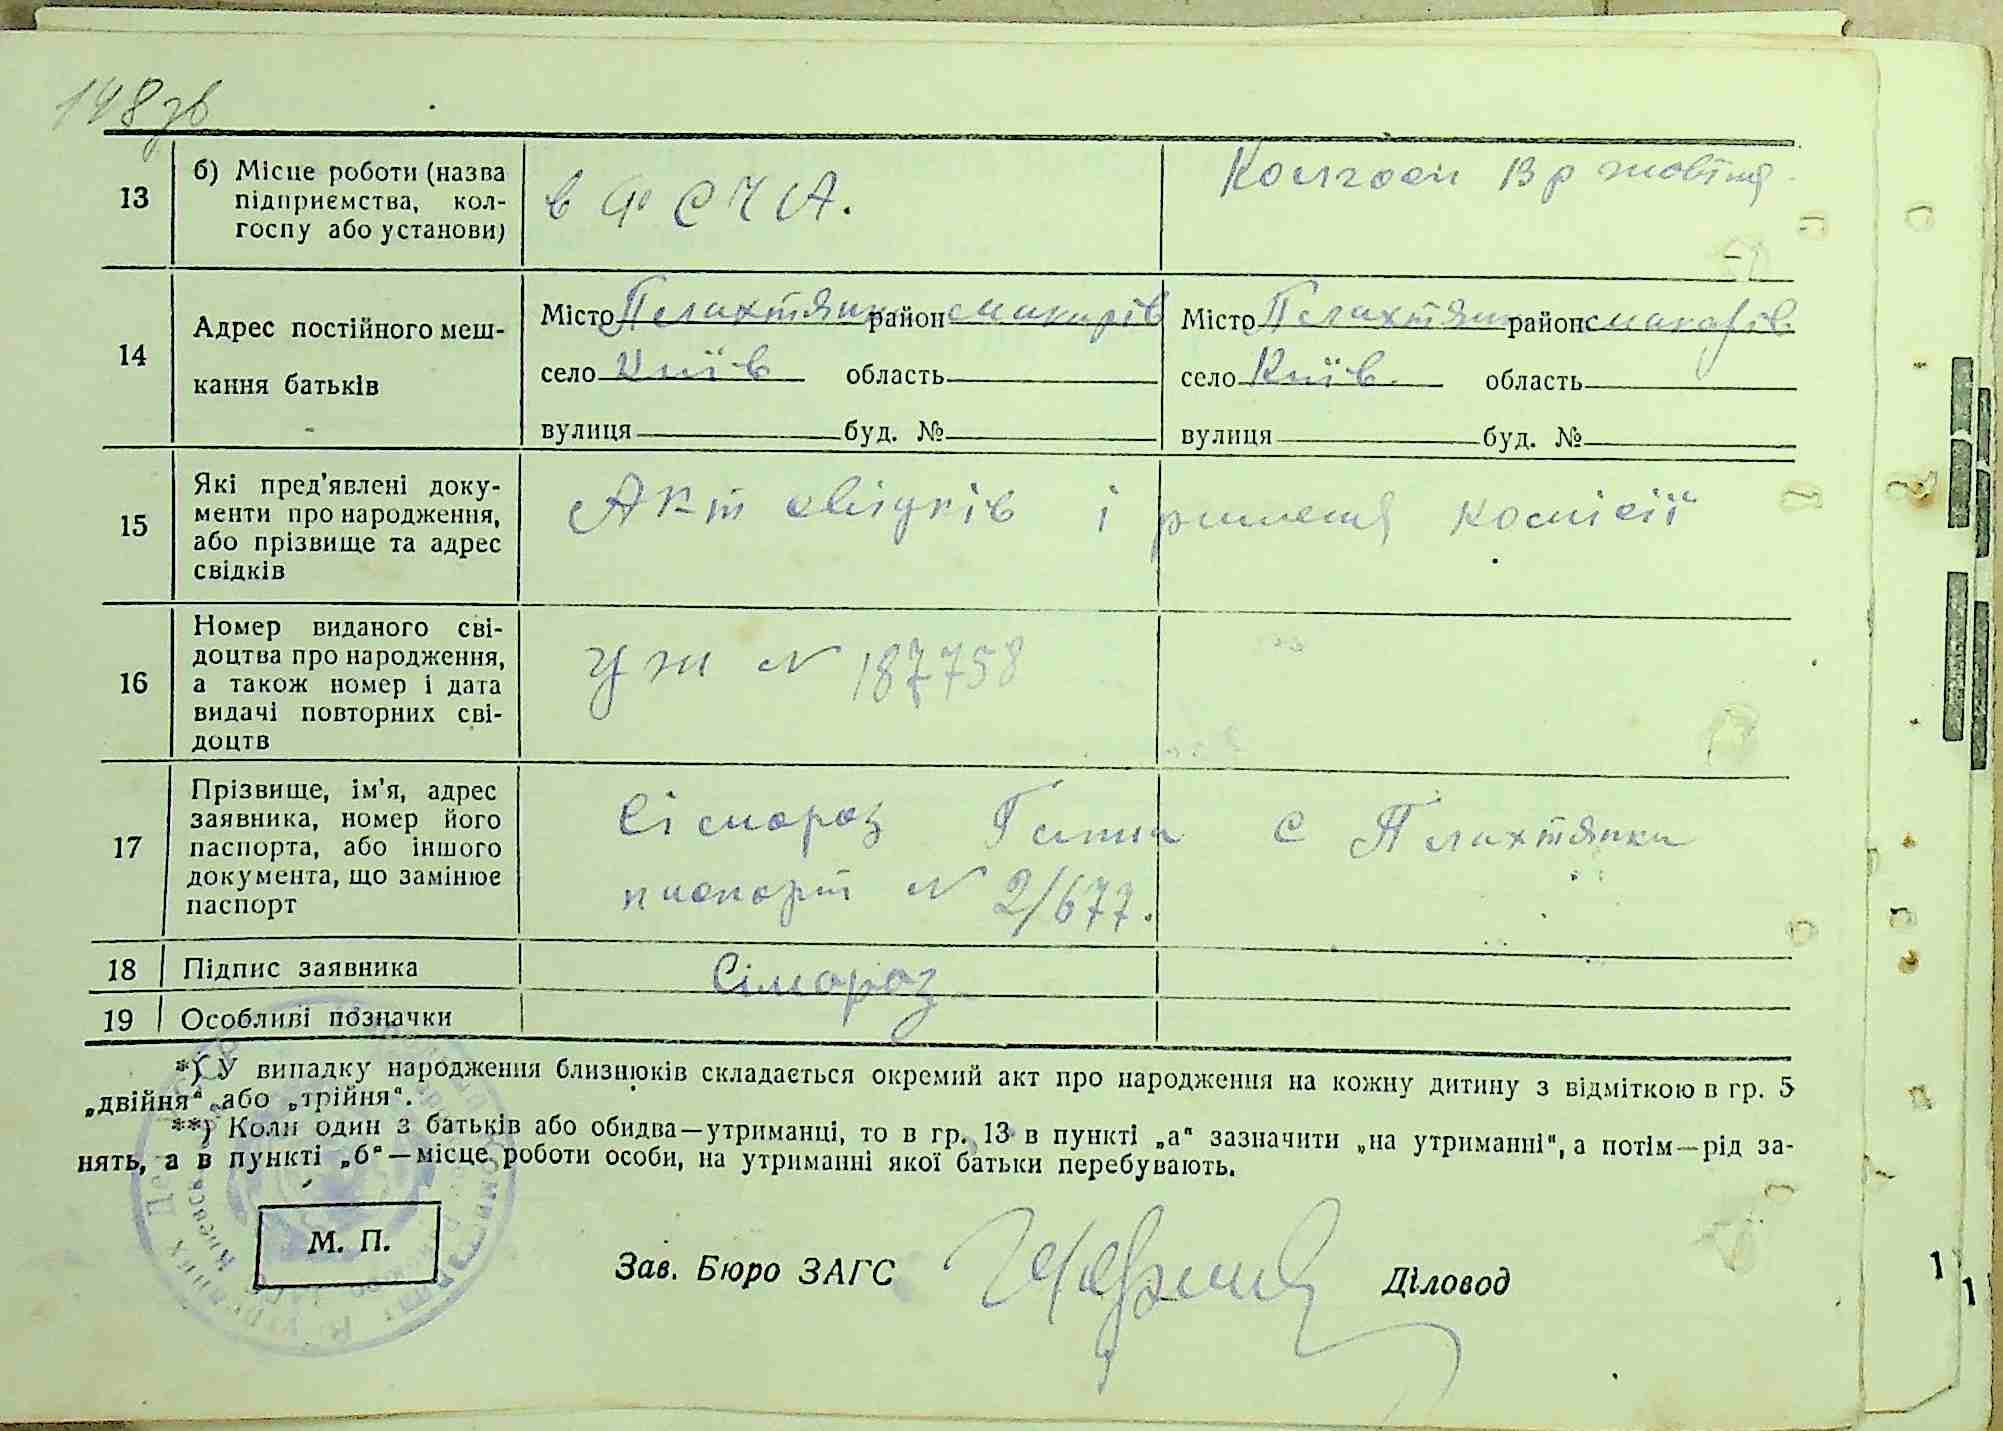 148 зв
13
б) Місце роботи (назва
підприємства, кол-
госпу або установи)
в
Колгосп 13 р жовтня
14
Адрес постійного меш-
кання батьків
Місто Плахтянка район Макарів
село Київ область
вулиця буд. №
Місто Плахтянка район Макарів
село Київ область
вулиця буд. №
15
Які пред'явлені доку-
менти про народження,
або прізвище та адрес
свідків
Акт свідків і рішення комісії
16
Номер виданого сві-
доцтва про народження,
а також номер і дата
видачі повторних сві-
доцтв
УЖ N 187758
17
Прізвище, ім'я, адрес
заявника, номер його
паспорта, або іншого
документа, що замінює
паспорт
Сімороз Ганна с Плахтянка
паспорт N 2/677.
18 Підпис заявника
Сімороз
19 Особливі позначки
*) У випадку народження близнюків складається окремий акт про народження на кожну дитину з відміткою в гр. 5
„двійня“ або „трійня“.
**) Коли один з батьків або обидва—утриманці, то в гр. 13 в пункті „а“ зазначити „на утриманні“, а потім—рід за-
нять, а в пункті „б“—місце роботи особи, на утриманні якої батьки перебувають.
М. П.
Зав. Бюро ЗАГС
Діловод
1
1